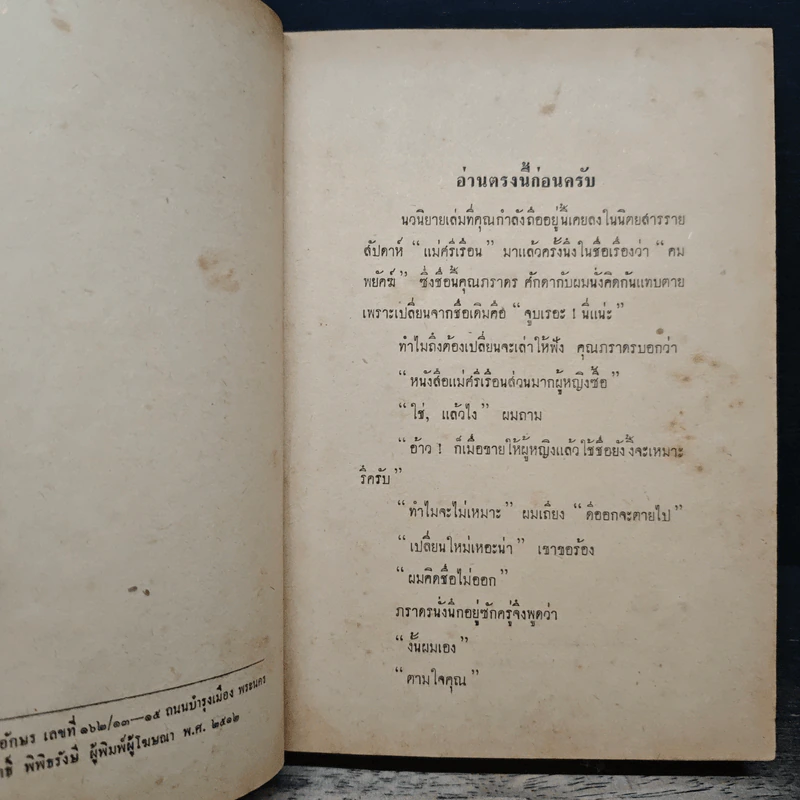 อักษร เลขที่ ๑๖๒/๑๓—๑๕ ถนนบำรุงเมือง พระนคร
พิพิธรังษี ผู้พิมพ์ผู้โฆษณา พ.ศ. ๒๕๑๒
อ่านตรงนี้ก่อนครับ
นวนิยายเล่มที่คุณกำลังถืออยู่นี้เคยลงในนิตยสารราย
สัปดาห์ “แม่ศรีเรือน” มาแล้วครั้งนึงในชื่อเรื่องว่า “คม
พยัคฆ์” ซึ่งชื่อนี้คุณภราดร ศักดากับผมนั่งคิดกันแทบตาย
เพราะเปลี่ยนจากชื่อเดิมคือ “จูบเรอะ ! นี่แน่ะ”
ทำไมถึงต้องเปลี่ยนจะเล่าให้ฟัง คุณภราดรบอกว่า
“หนังสือแม่ศรีเรือนส่วนมากผู้หญิงซื้อ”
“ใช่, แล้วไง” ผมถาม
“อ้าว ! ก็เมื่อขายให้ผู้หญิงแล้วใช้ชื่อยังงี้จะเหมาะ
รึครับ”
“ทำไมจะไม่เหมาะ” ผมเถียง “ดีออกจะตายไป”
“เปลี่ยนใหม่เหอะน่า” เขาขอร้อง
“ผมคิดชื่อไม่ออก”
ภราดรนั่งนึกอยู่ซักครู่จึงพูดว่า
“งั้นผมเอง”
“ตามใจคุณ”